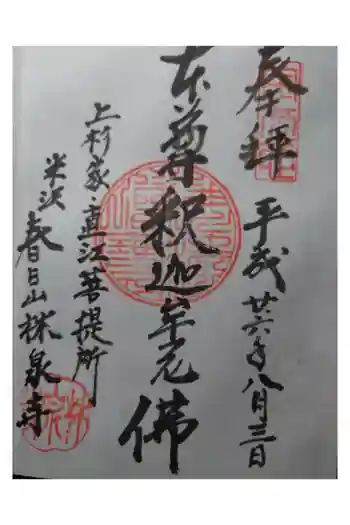 奉拝
平成廿六年八月三日
本尊釋迦牟尼佛
上杉家・直江菩提所
米沢 春日山 林泉寺